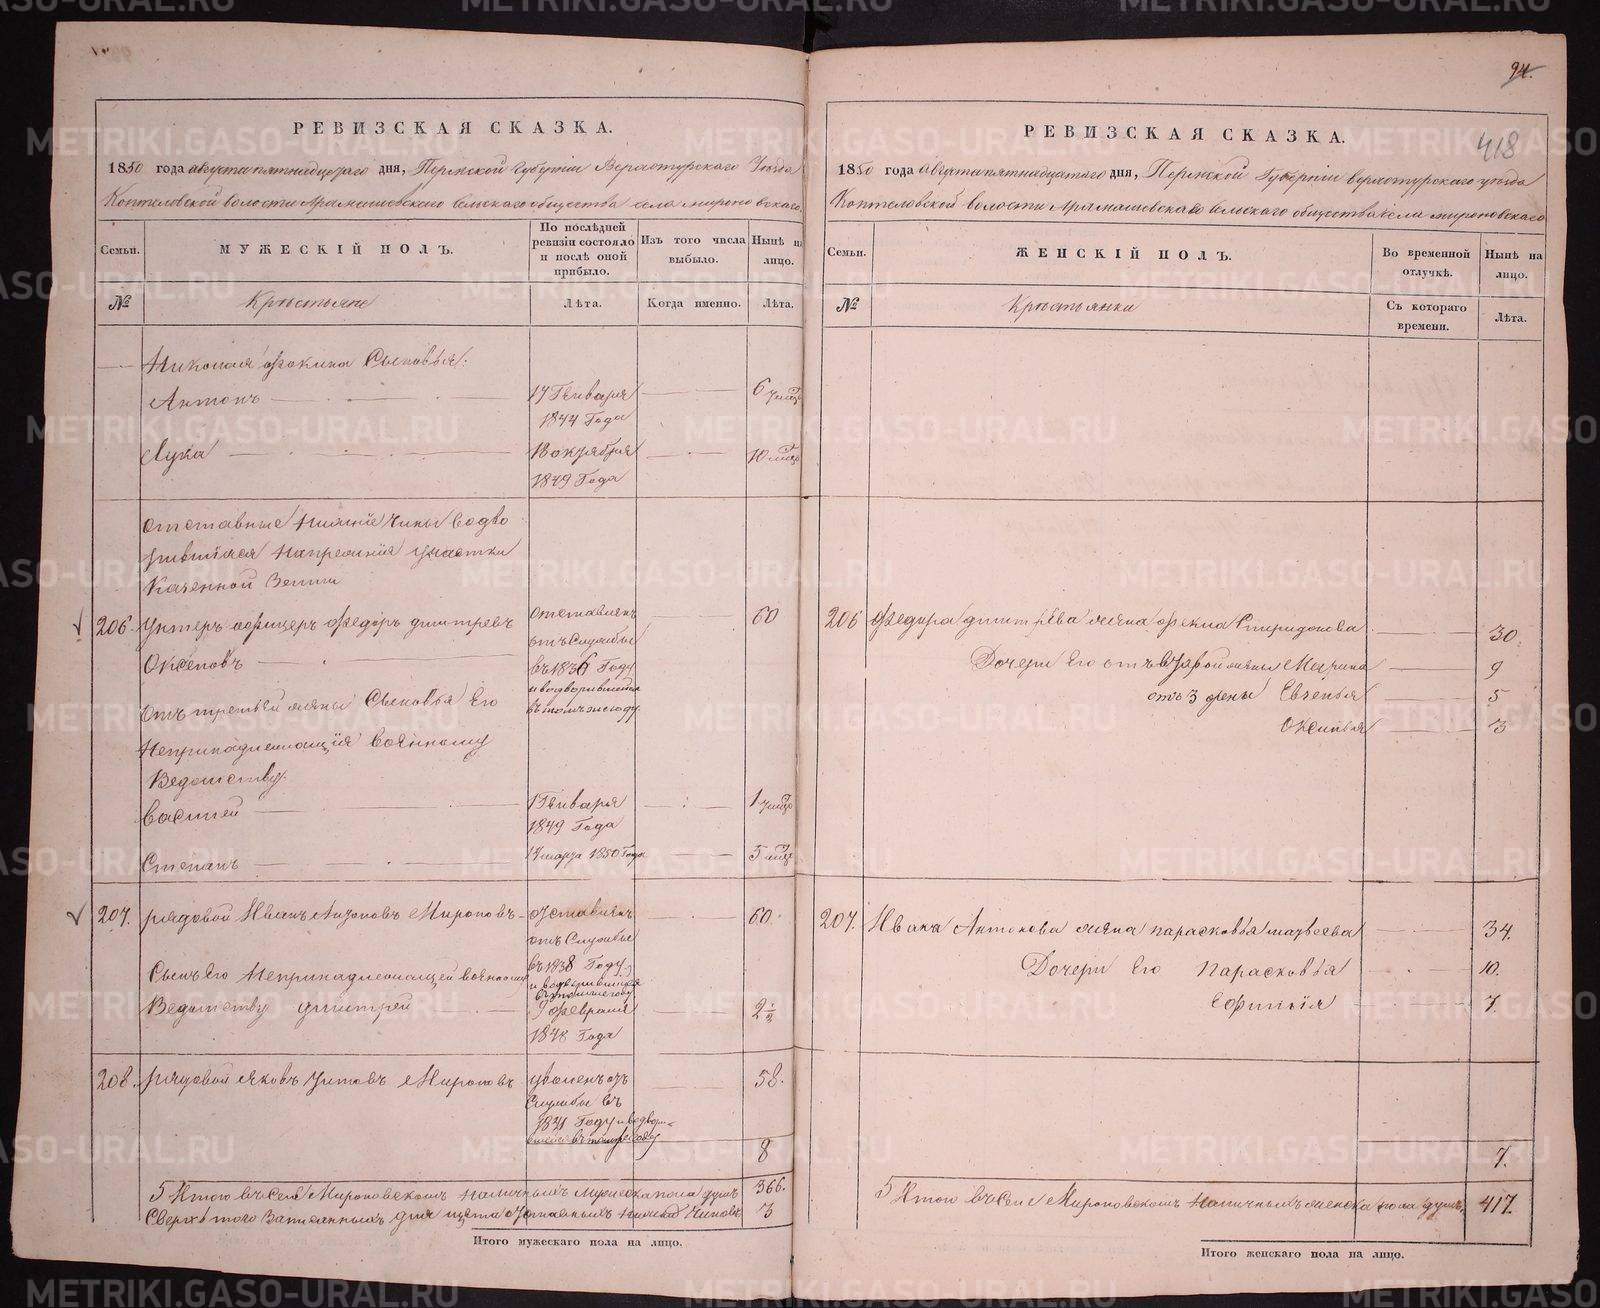 94.
418
РЕВИЗСКАЯ СКАЗКА.
1850 года августа пятнадцатаго дня, Пермской Губернии Верхотурскаго Уезда
Коптеловской волости Арамашевскаго сельскаго общества села мироновскаго
Семьи.
МУЖЕСКІЙ ПОЛЪ.
По послѣдней ревизіи состояло и послѣ оной прибыло.
Изъ того числа выбыло.
Нынѣ на лицо.
№
Крестьяне
Лѣта.
Когда именно.
Лѣта.
Николая Фокина Сыновья:
Антонъ 17 Генваря 6
1844 Года
Лука 18 октября 10
1849 Года
отставные нижніе чины водво
рившіяся
Казенной Земли
206. Унтеръ офицеръ Федоръ дмитревъ отставленъ 60
отъ Службы
въ 1836 Году
и водворившейся
въ томъ же году
отъ третьей жены Сыновья Его
Непринадлежащія военному
Ведомству
Василей 1 Генваря 1
1849 Года
Степанъ марта 1850 Года 5
207. рядовой Иванъ Антоновъ Мироновъ отставленъ 60.
отъ Службы
въ 1838 Году
Сынъ Его Непринадлежащей военному
Ведомству дмитрей Февраля 2 1/2
1848 Года
208. рядовой Яковъ Титовъ Мироновъ уволенъ отъ 58.
Службы въ
Году и водвори-
8
Итого въ Селе Мироновскомъ наличныхъ мужеска пола душъ 366.
Сверхъ того Записанныхъ для щета отставныхъ нижнихъ Чиновъ 3
Итого мужескаго пола на лицо.
РЕВИЗСКАЯ СКАЗКА.
1850 года августа пятнадцатого дня, Пермской Губернии верхотурскаго уезда
Коптеловской волости Арамашевскаго сельскаго общества села мироновскаго
Семьи.
ЖЕНСКІЙ ПОЛЪ.
Во временной отлучкѣ.
Нынѣ на лицо.
№
Крестьянки
Съ котораго времени.
Лѣта.
206 Федора дмитрева жена Фекла Спиридонова 30.
Дочери Его отъ второй жены Марина 9
отъ 3 жены Евгенья 5
3
207. Ивана Антонова жена парасковья матвеева 34.
Дочери Его Парасковья 10.
Ефимия 7.
7.
Итого въ Селе Мироновскомъ наличныхъ женска пола душъ, 417.
Итого женскаго пола на лицо.
METRIKI.GASO-URAL.RU